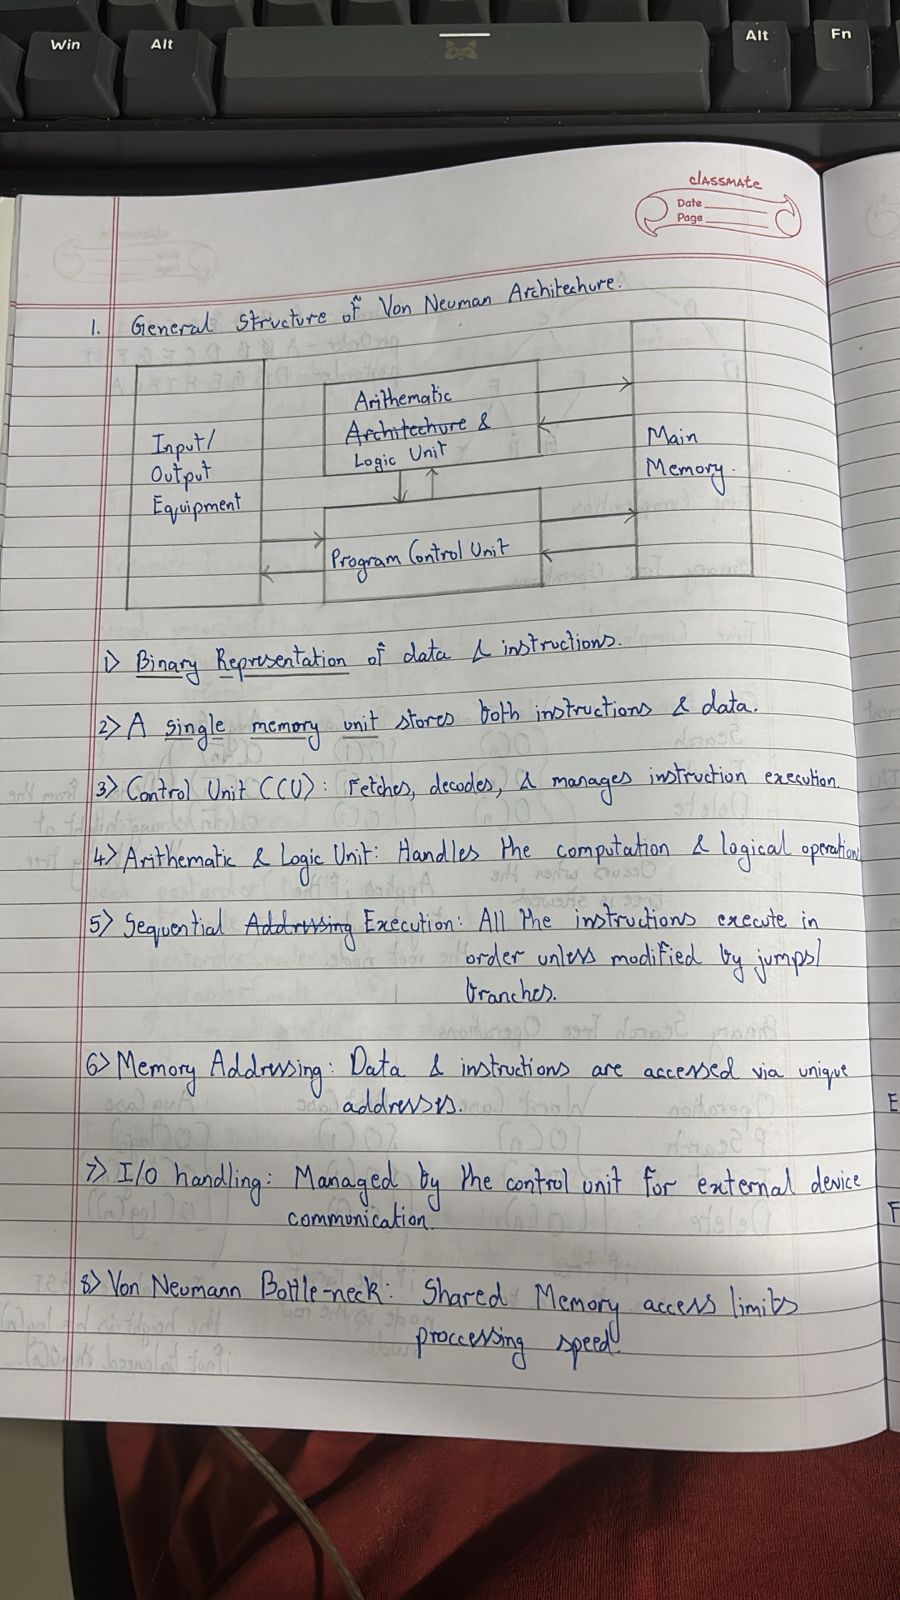 Win
Alt
Alt
Fn
classmate
Date
Page
1. General Structure of Von Neuman Architechure.
Input/
Output
Equipment
Arithematic
Architechure &
Logic Unit
Main
Memory.
Program Control Unit
1> Binary Representation of data & instructions.
2> A single memory unit stores both instructions & data.
3> Control Unit (CU): Fetches, decodes, & manages instruction execution.
4> Arithematic & Logic Unit: Handles the computation & logical operation
5> Sequential Addressing Execution: All the instructions execute in
order unless modified by jumps/
branches.
6> Memory Addressing: Data & instructions are accessed via unique
addresses.
7> I/O handling: Managed by the control unit for external device
communication.
8> Von Neumann Bottle-neck: Shared Memory access limits
proccessing speed.
E
F